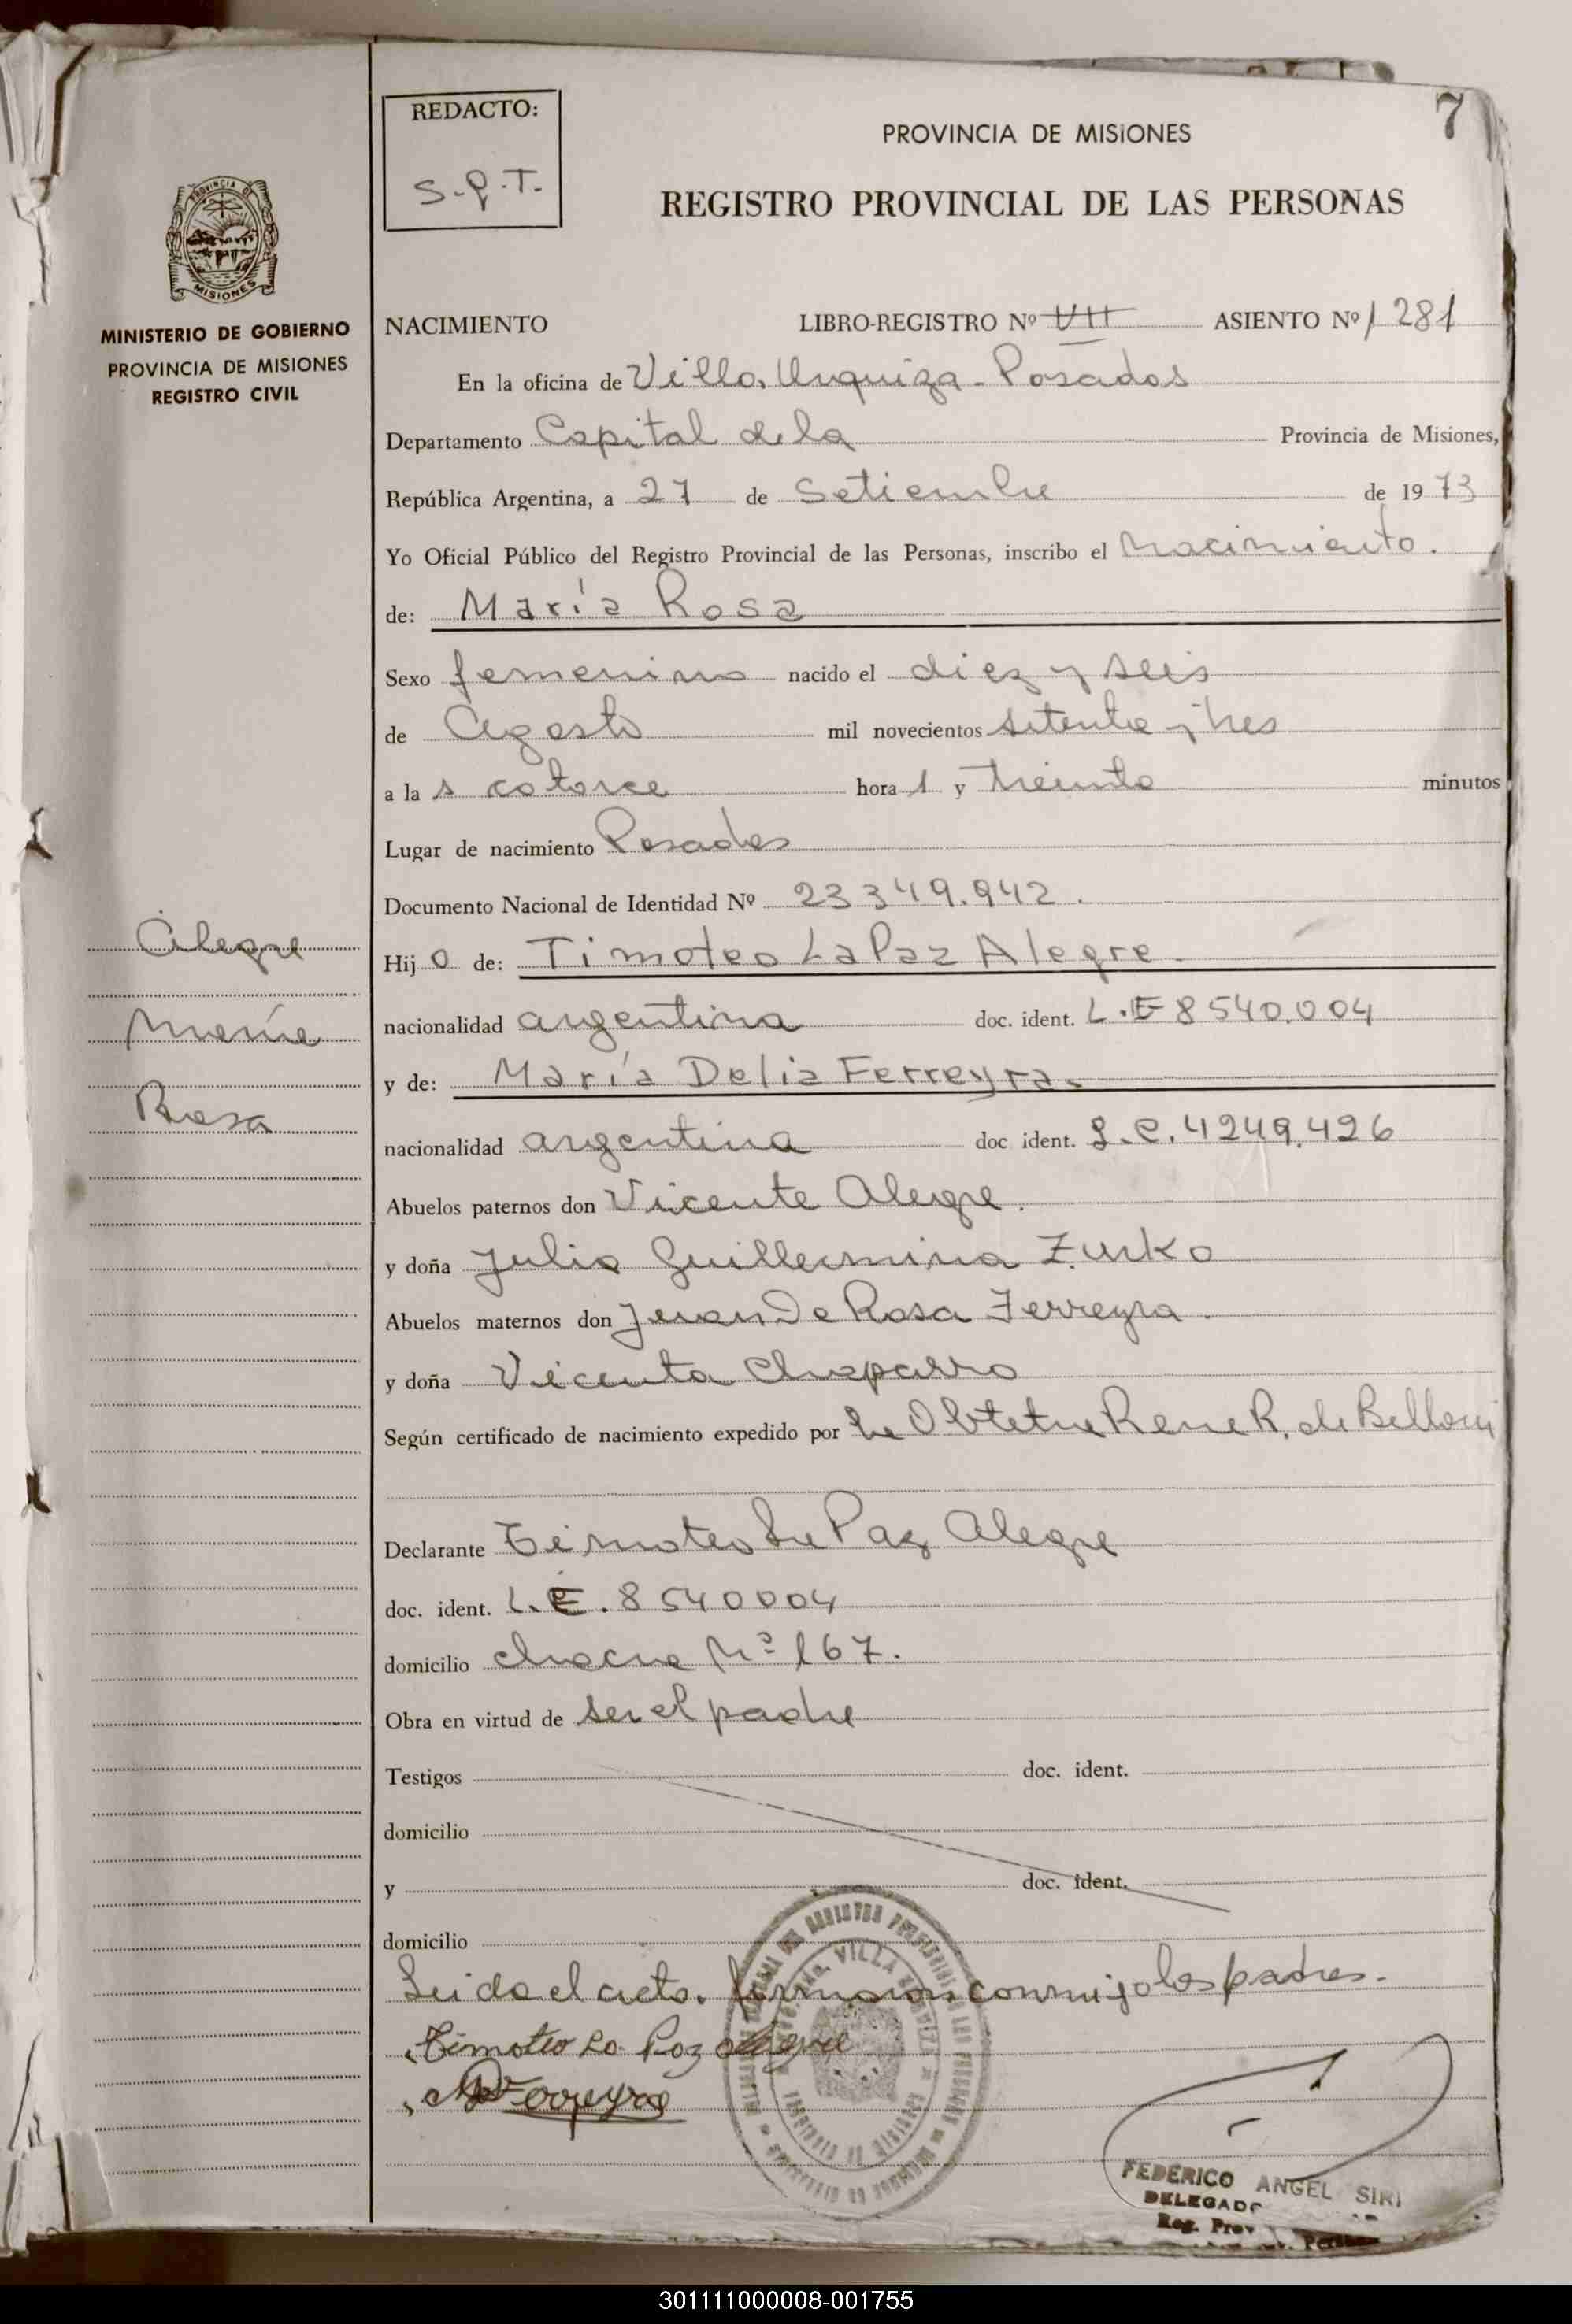 7
REDACTO:
S.P.T.
PROVINCIA DE MISIONES
REGISTRO PROVINCIAL DE LAS PERSONAS
PROVINCIA DE
MISIONES
MINISTERIO DE GOBIERNO
PROVINCIA DE MISIONES
REGISTRO CIVIL
NACIMIENTO LIBRO-REGISTRO Nº VII ASIENTO Nº 1281
En la oficina de Villa Urquiza - Posadas
Departamento Capital de la Provincia de Misiones,
República Argentina, a 27 de Setiembre de 1973
Yo Oficial Público del Registro Provincial de las Personas, inscribo el Nacimiento.
de: María Rosa
Sexo femenino nacido el diez y seis
de Agosto mil novecientos setenta y tres
a la s catorce hora s y treinta minutos
Lugar de nacimiento Posadas
Documento Nacional de Identidad Nº 23349.942.
Alegre
María
Rosa
Hij o de: Timoteo La Paz Alegre
nacionalidad argentina doc. ident. L.E 8540.004
y de: María Delia Ferreyra.
nacionalidad argentina doc ident. L.C. 4249.426
Abuelos paternos don Vicente Alegre.
y doña Julia Guillermina Zurko
Abuelos maternos don Juan De Rosa Ferreyra.
y doña Vicenta Chaparro
Según certificado de nacimiento expedido por La Obtetre Rene R. de Belloni
Declarante Timoteo La Paz Alegre
doc. ident. L.E. 8540004
domicilio chacra Nº 167.
Obra en virtud de ser el padre
Testigos doc. ident.
domicilio
y doc. ident.
domicilio
Leida el acta. firmaron conmigo los padres.
Timoteo La Paz Alegre
Ferreyra
VILLA
FEDERICO ANGEL SIRI
DELEGADO
Reg. Prov
301111000008-001755